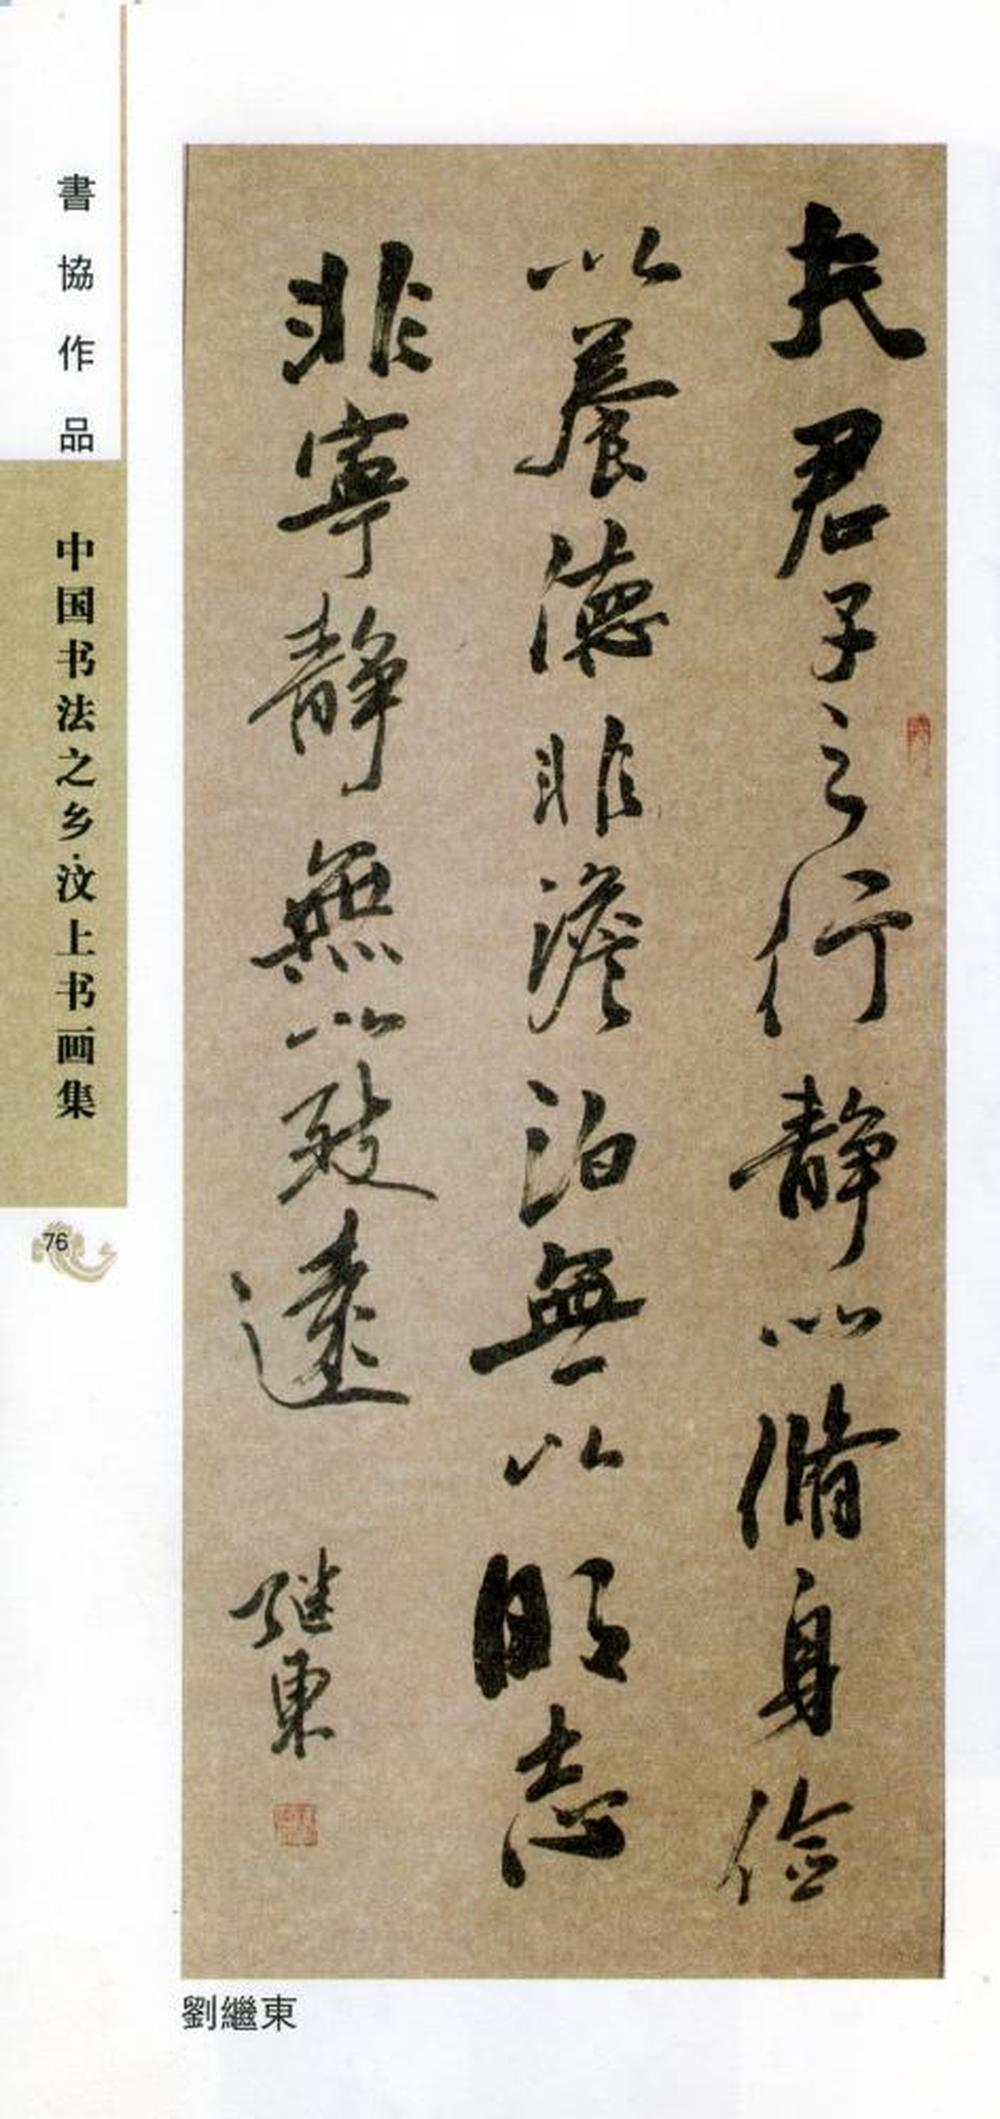 書協作品
中国书法之乡·汶上书画集
76
夫君子之行静以脩身儉
以養德非澹泊無以明志
非寧静無以致遠
继東
劉繼東